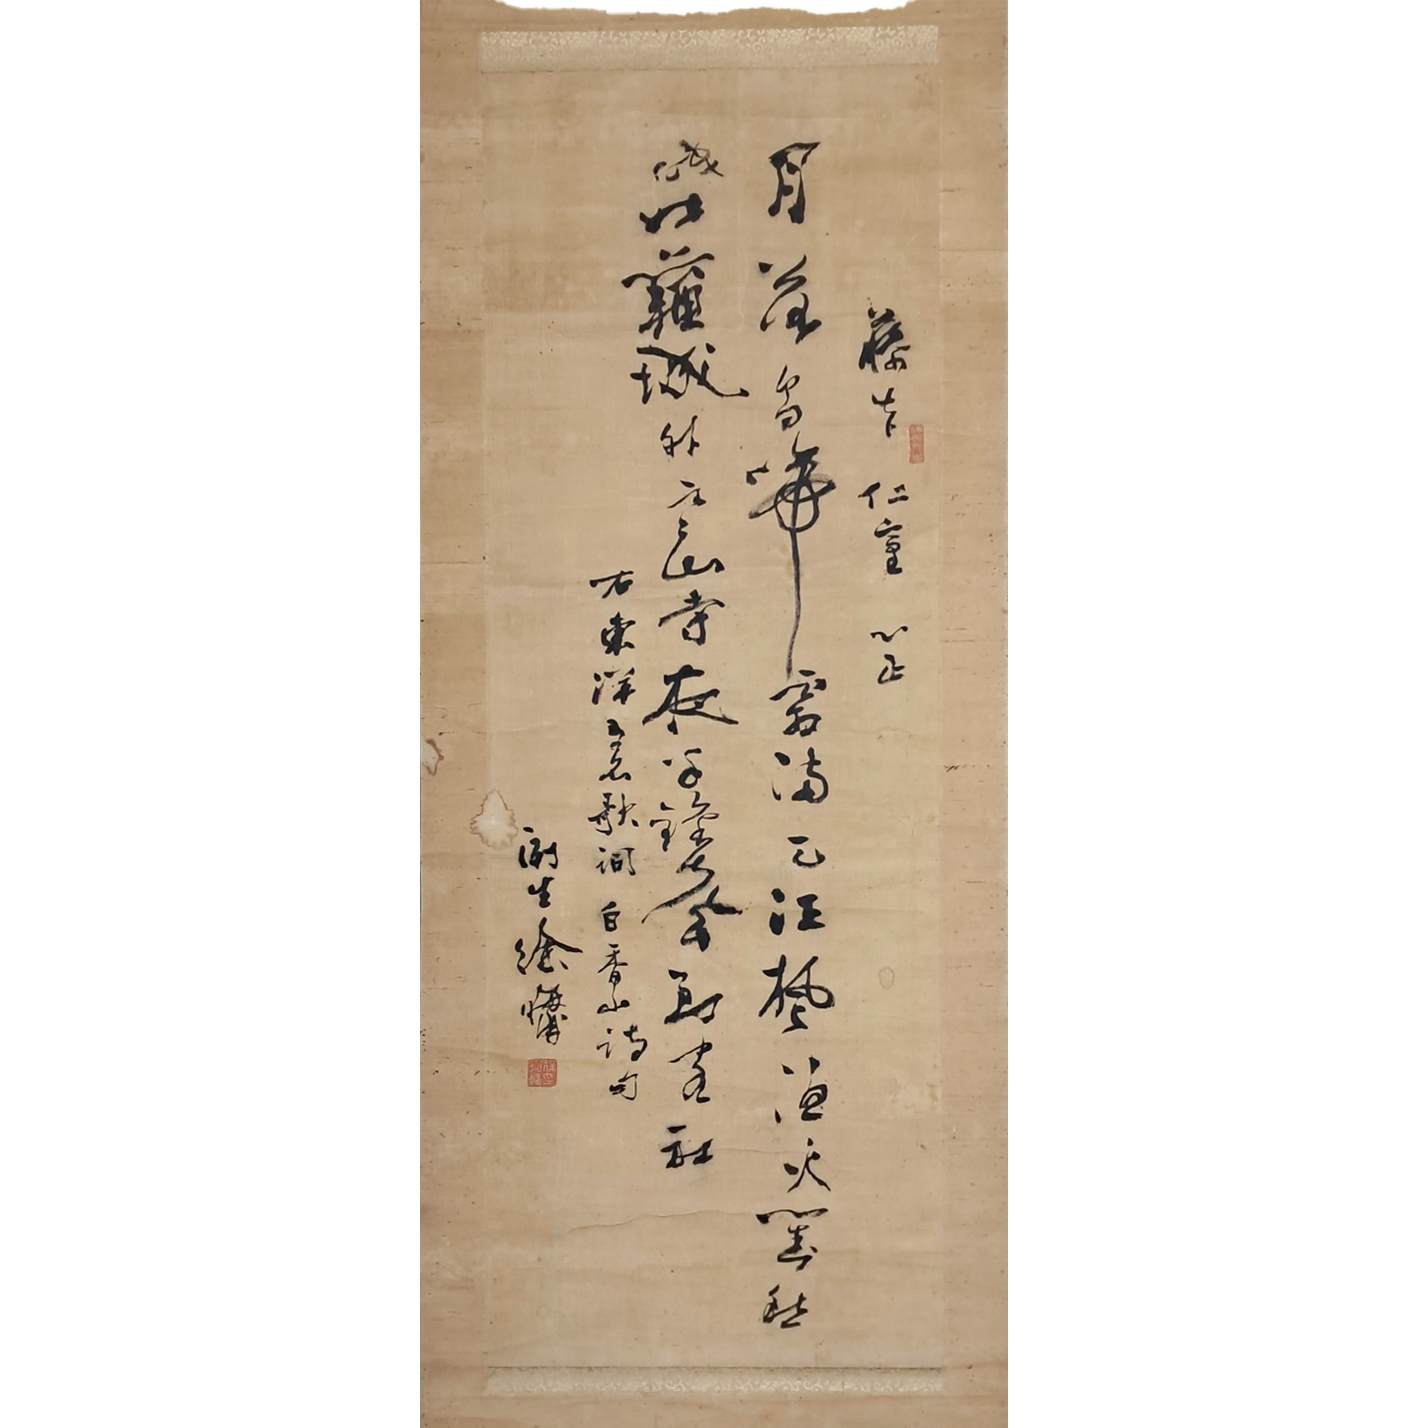 藤吉 仁
月落烏啼霜滿天江楓漁火對愁
眠姑蘇城外寒山寺夜半鐘聲到客船
右東洋歌詞白香山詩句
生徐